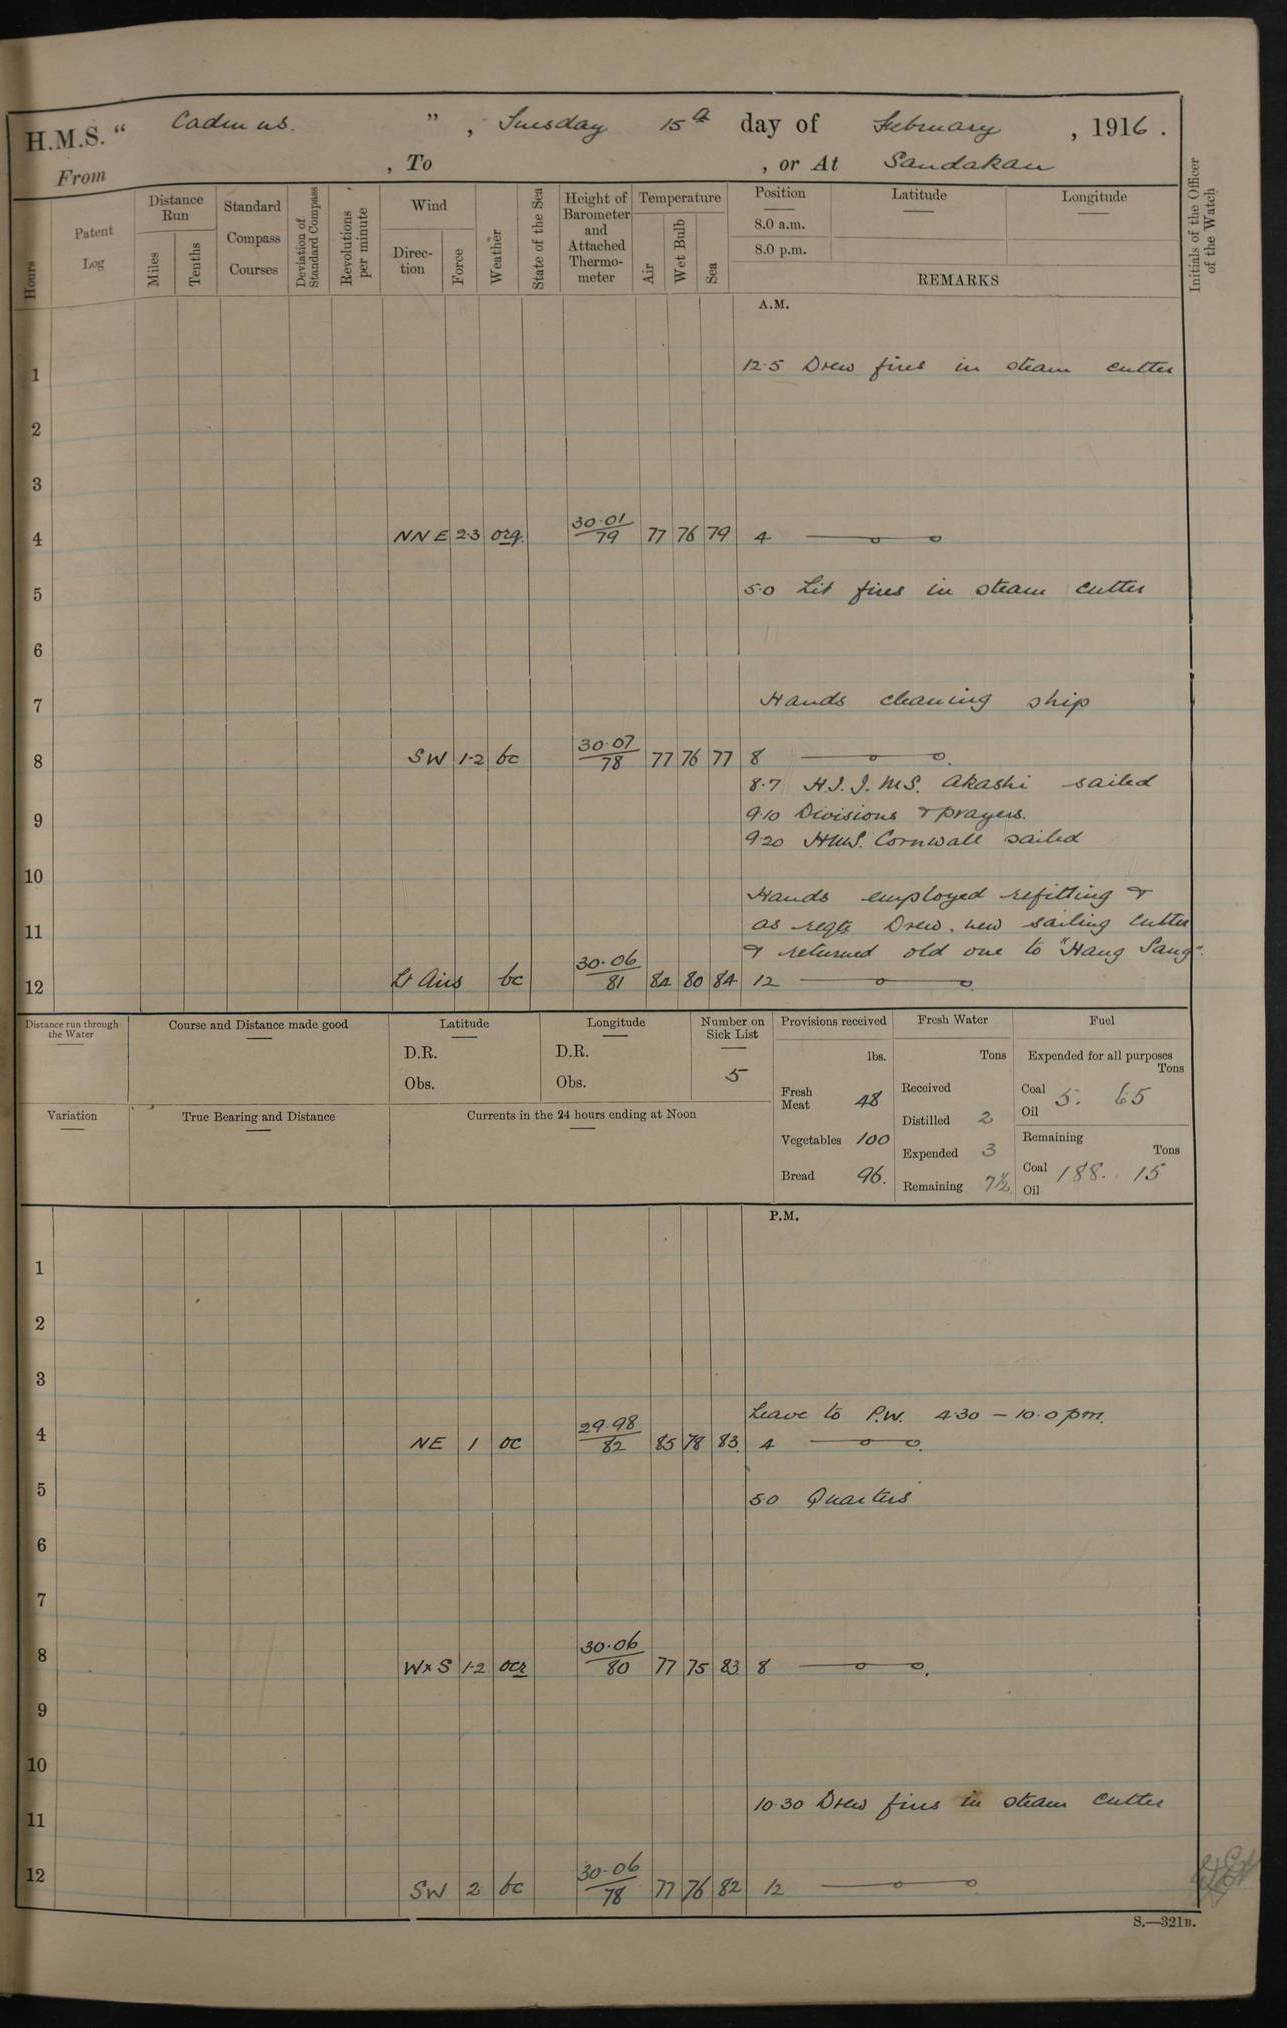 H.M.S. “ Cadmus. ” , Tuesday 15th day of February , 1916 .
From , To , or At Sandakan
Hours
Patent Log
Distance Run
Miles
Tenths
Standard Compass Courses
Deviation of Standard Compass
Revolutions per minute
Wind
Direc-tion
Force
Weather
State of the Sea
Height of Barometer and Attached Thermo-meter
Temperature
Air
Wet Bulb
Sea
Position
8.0 a.m.
8.0 p.m.
Latitude
Longitude
REMARKS
Initials of the Officer of the Watch
A.M.
1 12.5 Drew fires in steam cutter
2
3
4 NNE 2.3 org. 30.01/79 77 76 79 4
5 5.0 Lit fires in steam cutter
6
7 Hands cleaning ship
8 SW 1-2 bc 30.07/78 77 76 77 8
8.7 H.I.J.M.S. Akashi sailed
9 9.10 Divisions & prayers.
9.20 H.M.S. Cornwall sailed
10
Hands employed refitting &
11 as reqte Drew new sailing cutter
& returned old one to "Hang Sang".
12 Lt Airs bc 30.06/81 84 80 84 12
Distance run through the Water
Course and Distance made good
Latitude
D.R.
Obs.
Longitude
D.R.
Obs.
Number on Sick List
5
Provisions received
lbs.
Fresh Meat 48
Vegetables 100
Bread 96.
Fresh Water
Tons
Received
Distilled 2
Expended 3
Remaining 7½
Fuel
Expended for all purposes
Tons
Coal 5. 65
Oil
Remaining
Tons
Coal 188. 15
Oil
Variation
True Bearing and Distance
Currents in the 24 hours ending at Noon
P.M.
1
2
3
Leave to P.W. 4.30 - 10.0 pm.
4 NE 1 oc 29.98/82 85 78 83 4
5 5.0 Quarters
6
7
8 W x S 1-2 ocr 30.06/80 77 75 83 8
9
10
10.30 Drew fires in steam cutter
11
12 SW 2 bc 30.06/78 77 76 82 12
S.—321B.